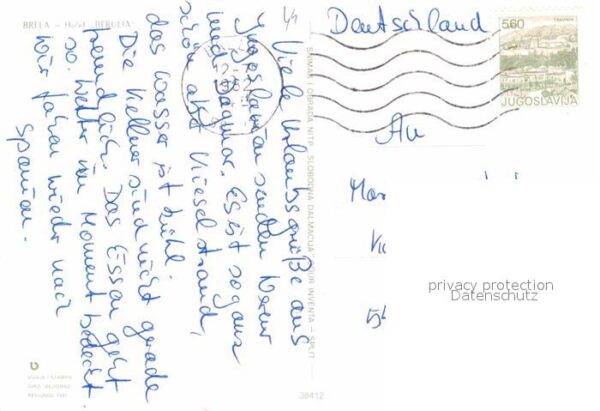 BRELA – Hotel "BERULIA"
Viele Urlaubsgrüße aus
Jugoslawien senden Werner
und Dagmar. Es ist so ganz
schön aber Kieselstrand,
das Wasser ist kühl.
Die Kellner sind nicht gerade
freundlich. Das Essen geht
so. Wetter im Moment bedeckt
Wir fahren wieder nach
Spanien.
SLOBODNA DALMACIJA
SPLIT
38412
Deutschland
5.60
JUGOSLAVIJA
An
privacy protection
Datenschutz